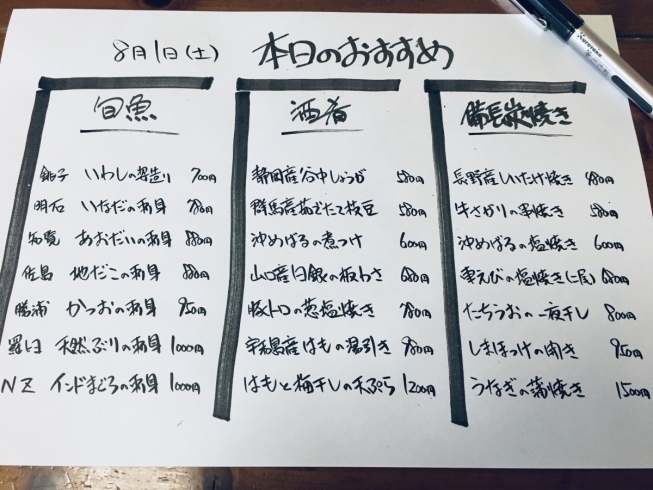 8月1日(土) 本日のおすすめ
旬魚
銚子 いわしの姿造り 700円
明石 いなだの刺身 780円
知覧 あおだいの刺身 880円
佐島 地だこの刺身 880円
勝浦 かつおの刺身 950円
羅臼 天然ぶりの刺身 1000円
NZ インドまぐろの刺身 1000円
酒肴
静岡産谷中しょうが 580円
群馬産茹でたて枝豆 580円
沖めばるの煮つけ 600円
山口産日銀の板わさ 680円
豚トロの葱塩焼き 780円
産はもの湯引き 980円
はもと梅干しの天ぷら 1200円
備長炭焼き
長野産しいたけ焼き 480円
牛さがりの串焼き 580円
沖めばるの塩焼き 600円
車えびの塩焼き(二尾) 680円
たちうおの一夜干し 800円
しまほっけの開き 950円
うなぎの蒲焼き 1500円